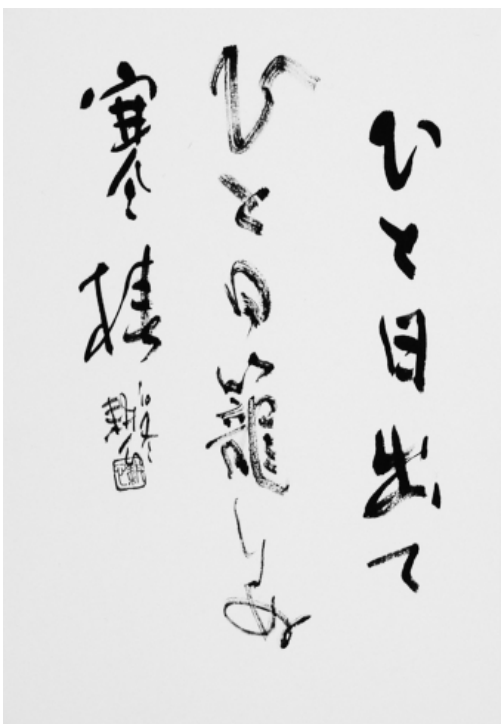 ひと日出て
ひと日籠りぬ
寒椿